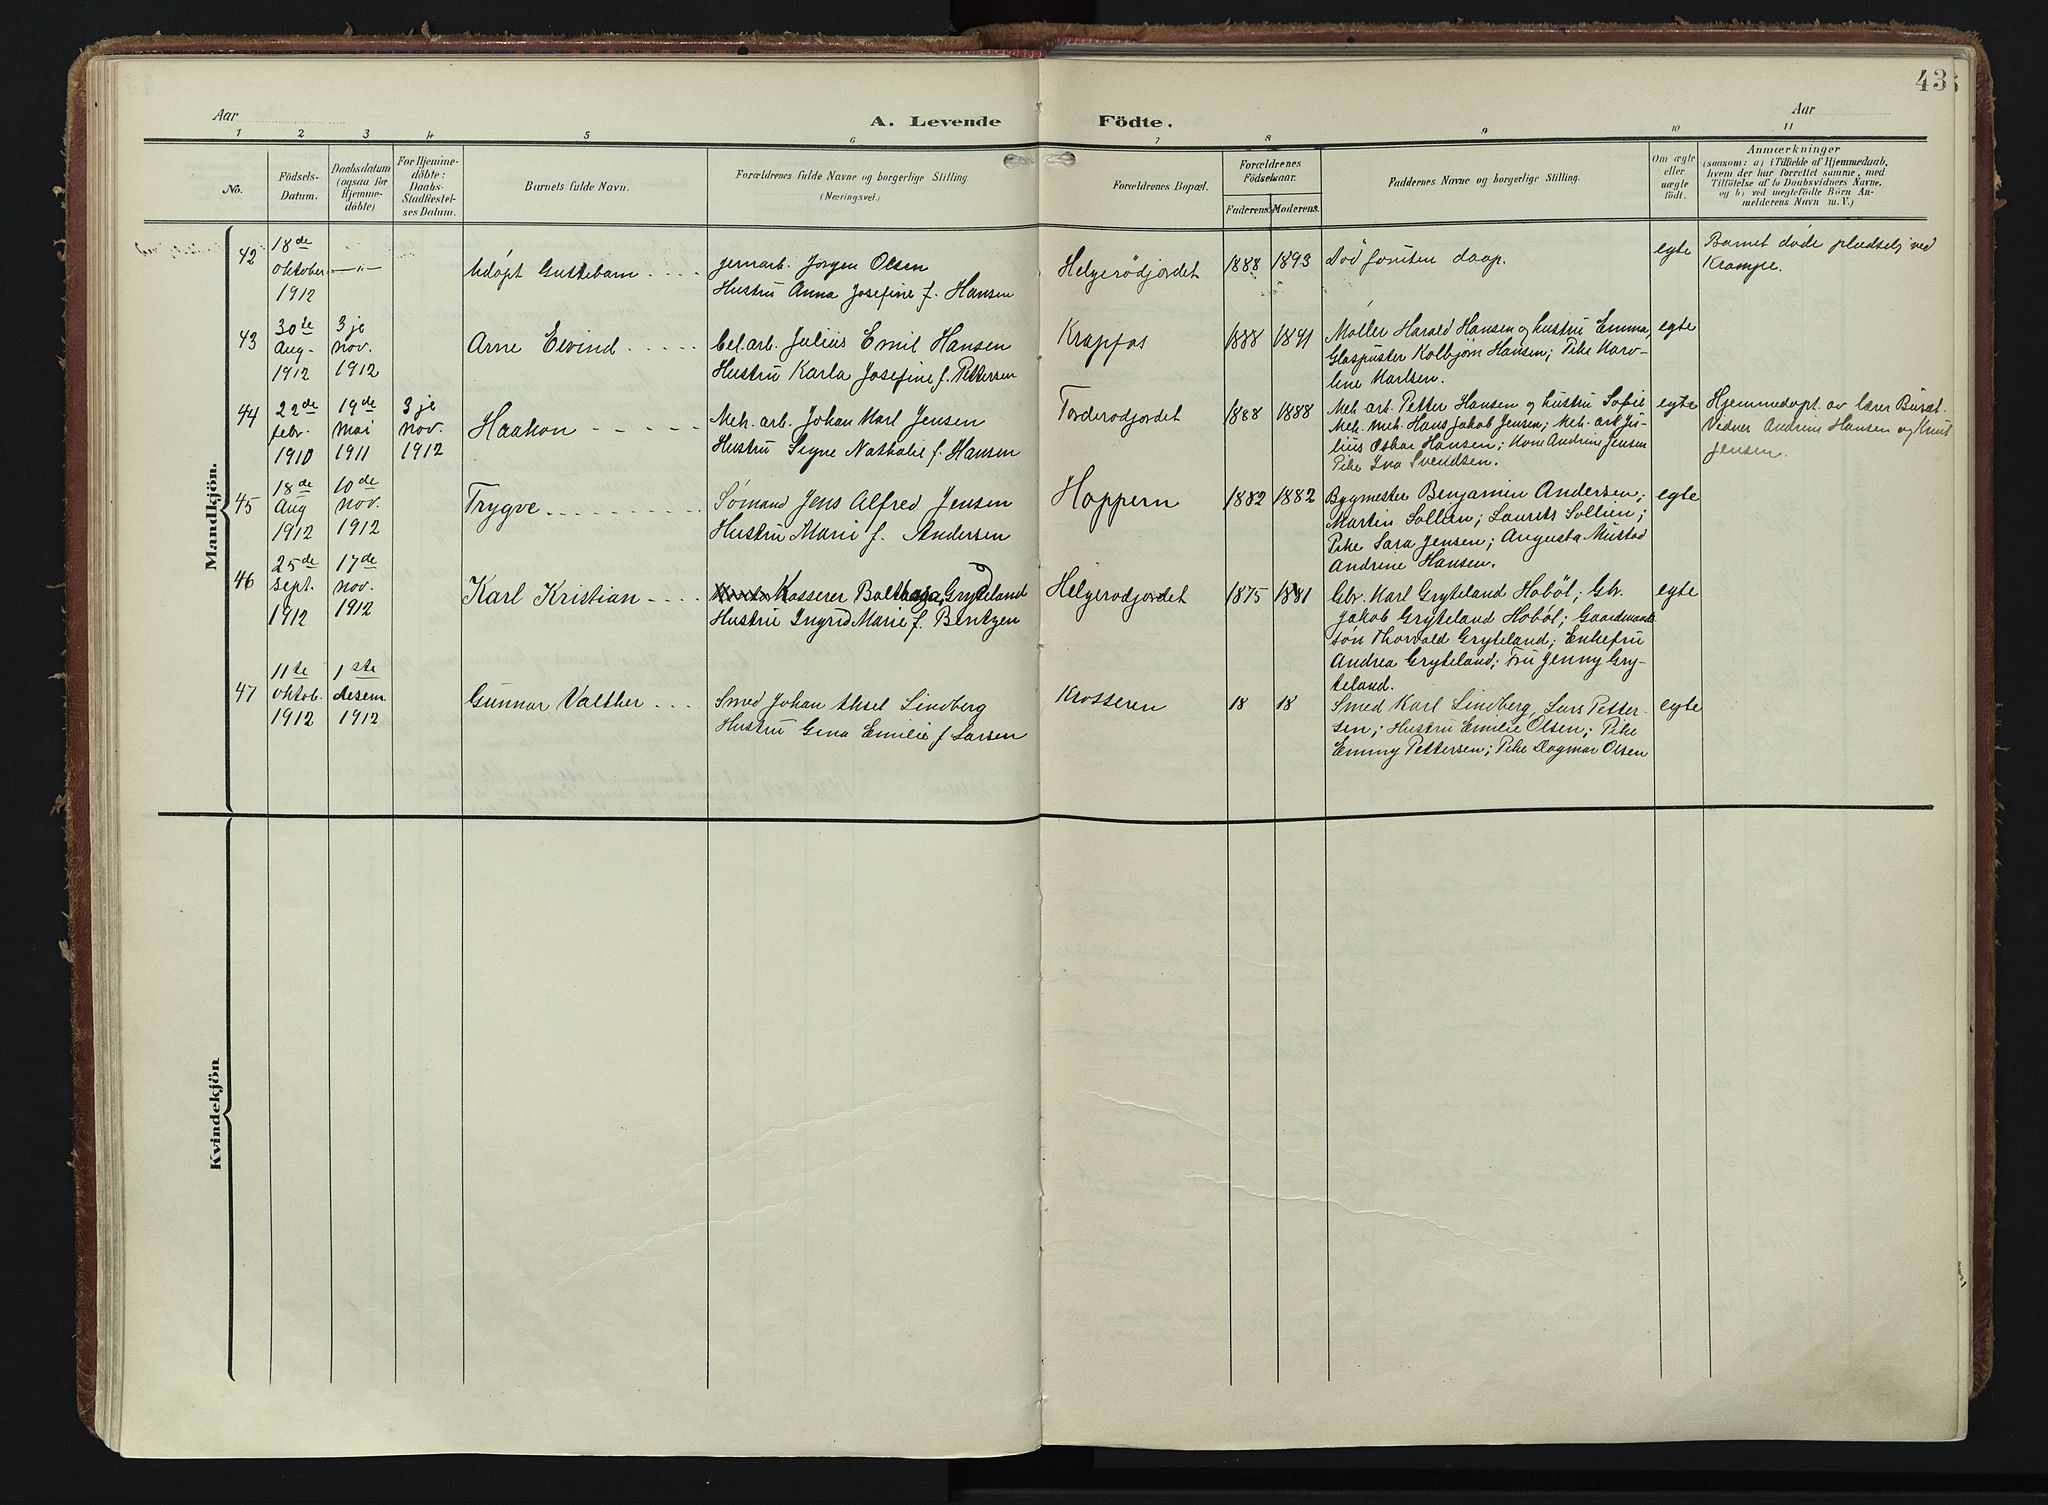 43
Aar
A. Levende Födte.
Aar
1 2 3 4 5 6 7 8 9 10 11
No.
Födsels-
Datum.
Daabsdatum
(ogsaa for
Hjemme-
döbte)
For Hjemme-
döbte:
Daabs-
Stadfæstel-
ses Datum.
Barnets fulde Navn.
Forældrenes fulde Navne og borgerlige Stilling.
(Næringsvei.)
Forældrenes Bopæl.
Forældrenes
Födselsaar.
Faderens. Moderens.
Faddernes Navne og borgerlige Stilling.
Om ægte
eller
uægte
födt.
Anmærkninger
(saasom: a) i Tilfælde af Hjemmedaab,
hvem der har forrettet samme, med
Tilföielse af to Daabsvidners Navne,
og b) ved uegtefödte Börn An-
melderens Navn m. V.)
Mandkjön.
42
18de
oktober
1912
—"—
Udöpt Guttebarn
jernarb. Jørgen Olsen
Hustru Anna Josefine f. Hansen
Helgerödjordet
1888 1893
Död foruten daap.
egte
Barnet døde pludselig ved
Krampe.
43
30te
Aug.
1912
3je
nov.
1912
Arne Eivind
bel.arb. Julius Emil Hansen
Hustru Karla Josefine f. Pettersen
Krapfos
1888 1891
Møller Harald Hansen og hustru Emma,
Glaspuster Kolbjørn Hansen; Pike Karo-
line Karlsen.
egte
44
22de
febr.
1910
19de
mai
1911
3je
nov.
1912
Haakon
Mek. arb. Johan Karl Jensen
Hustru Signe Nathalie f. Hansen
Torderodjordet
1888 1888
Mek. arb. Petter Hansen og hustru Sofie
Mek. mek. Hans Jakob Jensen; Mek. arb. Ju-
lius Oskar Hansen; Kone Andrine Jensen
Pike Ina Svendsen.
egte
Hjemmedøpt av lærer
Vidner Andrine Hansen og Knut
Jensen.
45
18de
Aug
1912
10de
nov.
1912
Trygve
Sømand Jens Alfred Jensen
Hustru Marie f. Andersen
Hoppern
1882 1882
Bygmester Benjamin Andersen;
Martin Sollien; Laurits Sollien;
Pike Sara Jensen; Augusta Mustad
Andrine Hansen.
egte
46
25de
sept.
1912
17de
nov.
1912
Karl Kristian
Kasserer Balthazar Gryteland
Hustru Ingrid Marie f. Bentzen
Helgerodjordet
1875 1881
Gbr. Karl Gryteland Hobøl; Gbr.
Jakob Gryteland Hobøl; Gaardmands
søn Thorvald Gryteland; Enkefru
Andrea Gryteland; Fru Jenny Gry-
teland.
egte
47
11te
oktob.
1912
1ste
desem.
1912
Gunnar Valther
Smed Johan Aksel Lindberg
Hustru Gina Emilie f Larsen
Krosseren
18 18
Smed Karl Lindberg, Lars Petter-
sen; Hustru Emilie Olsen; Pike
Emmy Pettersen; Pike Dagmar Olsen
egte
Kvindekjön